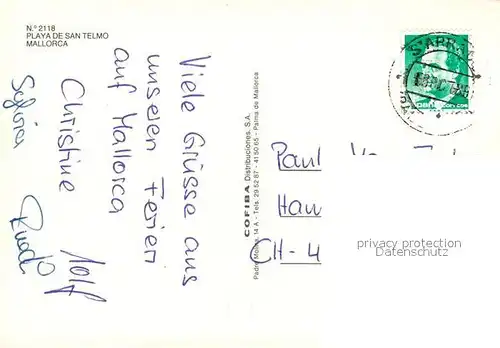 N.º 2118
PLAYA DE SAN TELMO
MALLORCA
Viele Grüsse aus
unseren Ferien
auf Mallorca
Christine Rolf
Ruedi
COFIBA Distribuciones, S.A.
Tels. 29 52 87 - 41 50 65 - Palma de Mallorca
Paul
CH-4
privacy protection
Datenschutz